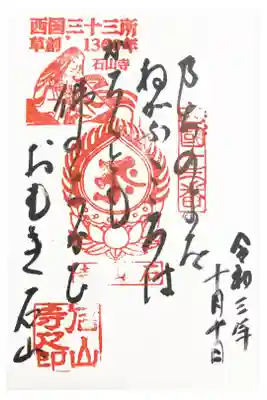 西国三十三所
草創 1300年
石山寺
令和三年
十月十日
のちのよを
ねがふこゝろは
かろくとも
佛のちかひ
おもき石山
石山
寺之印